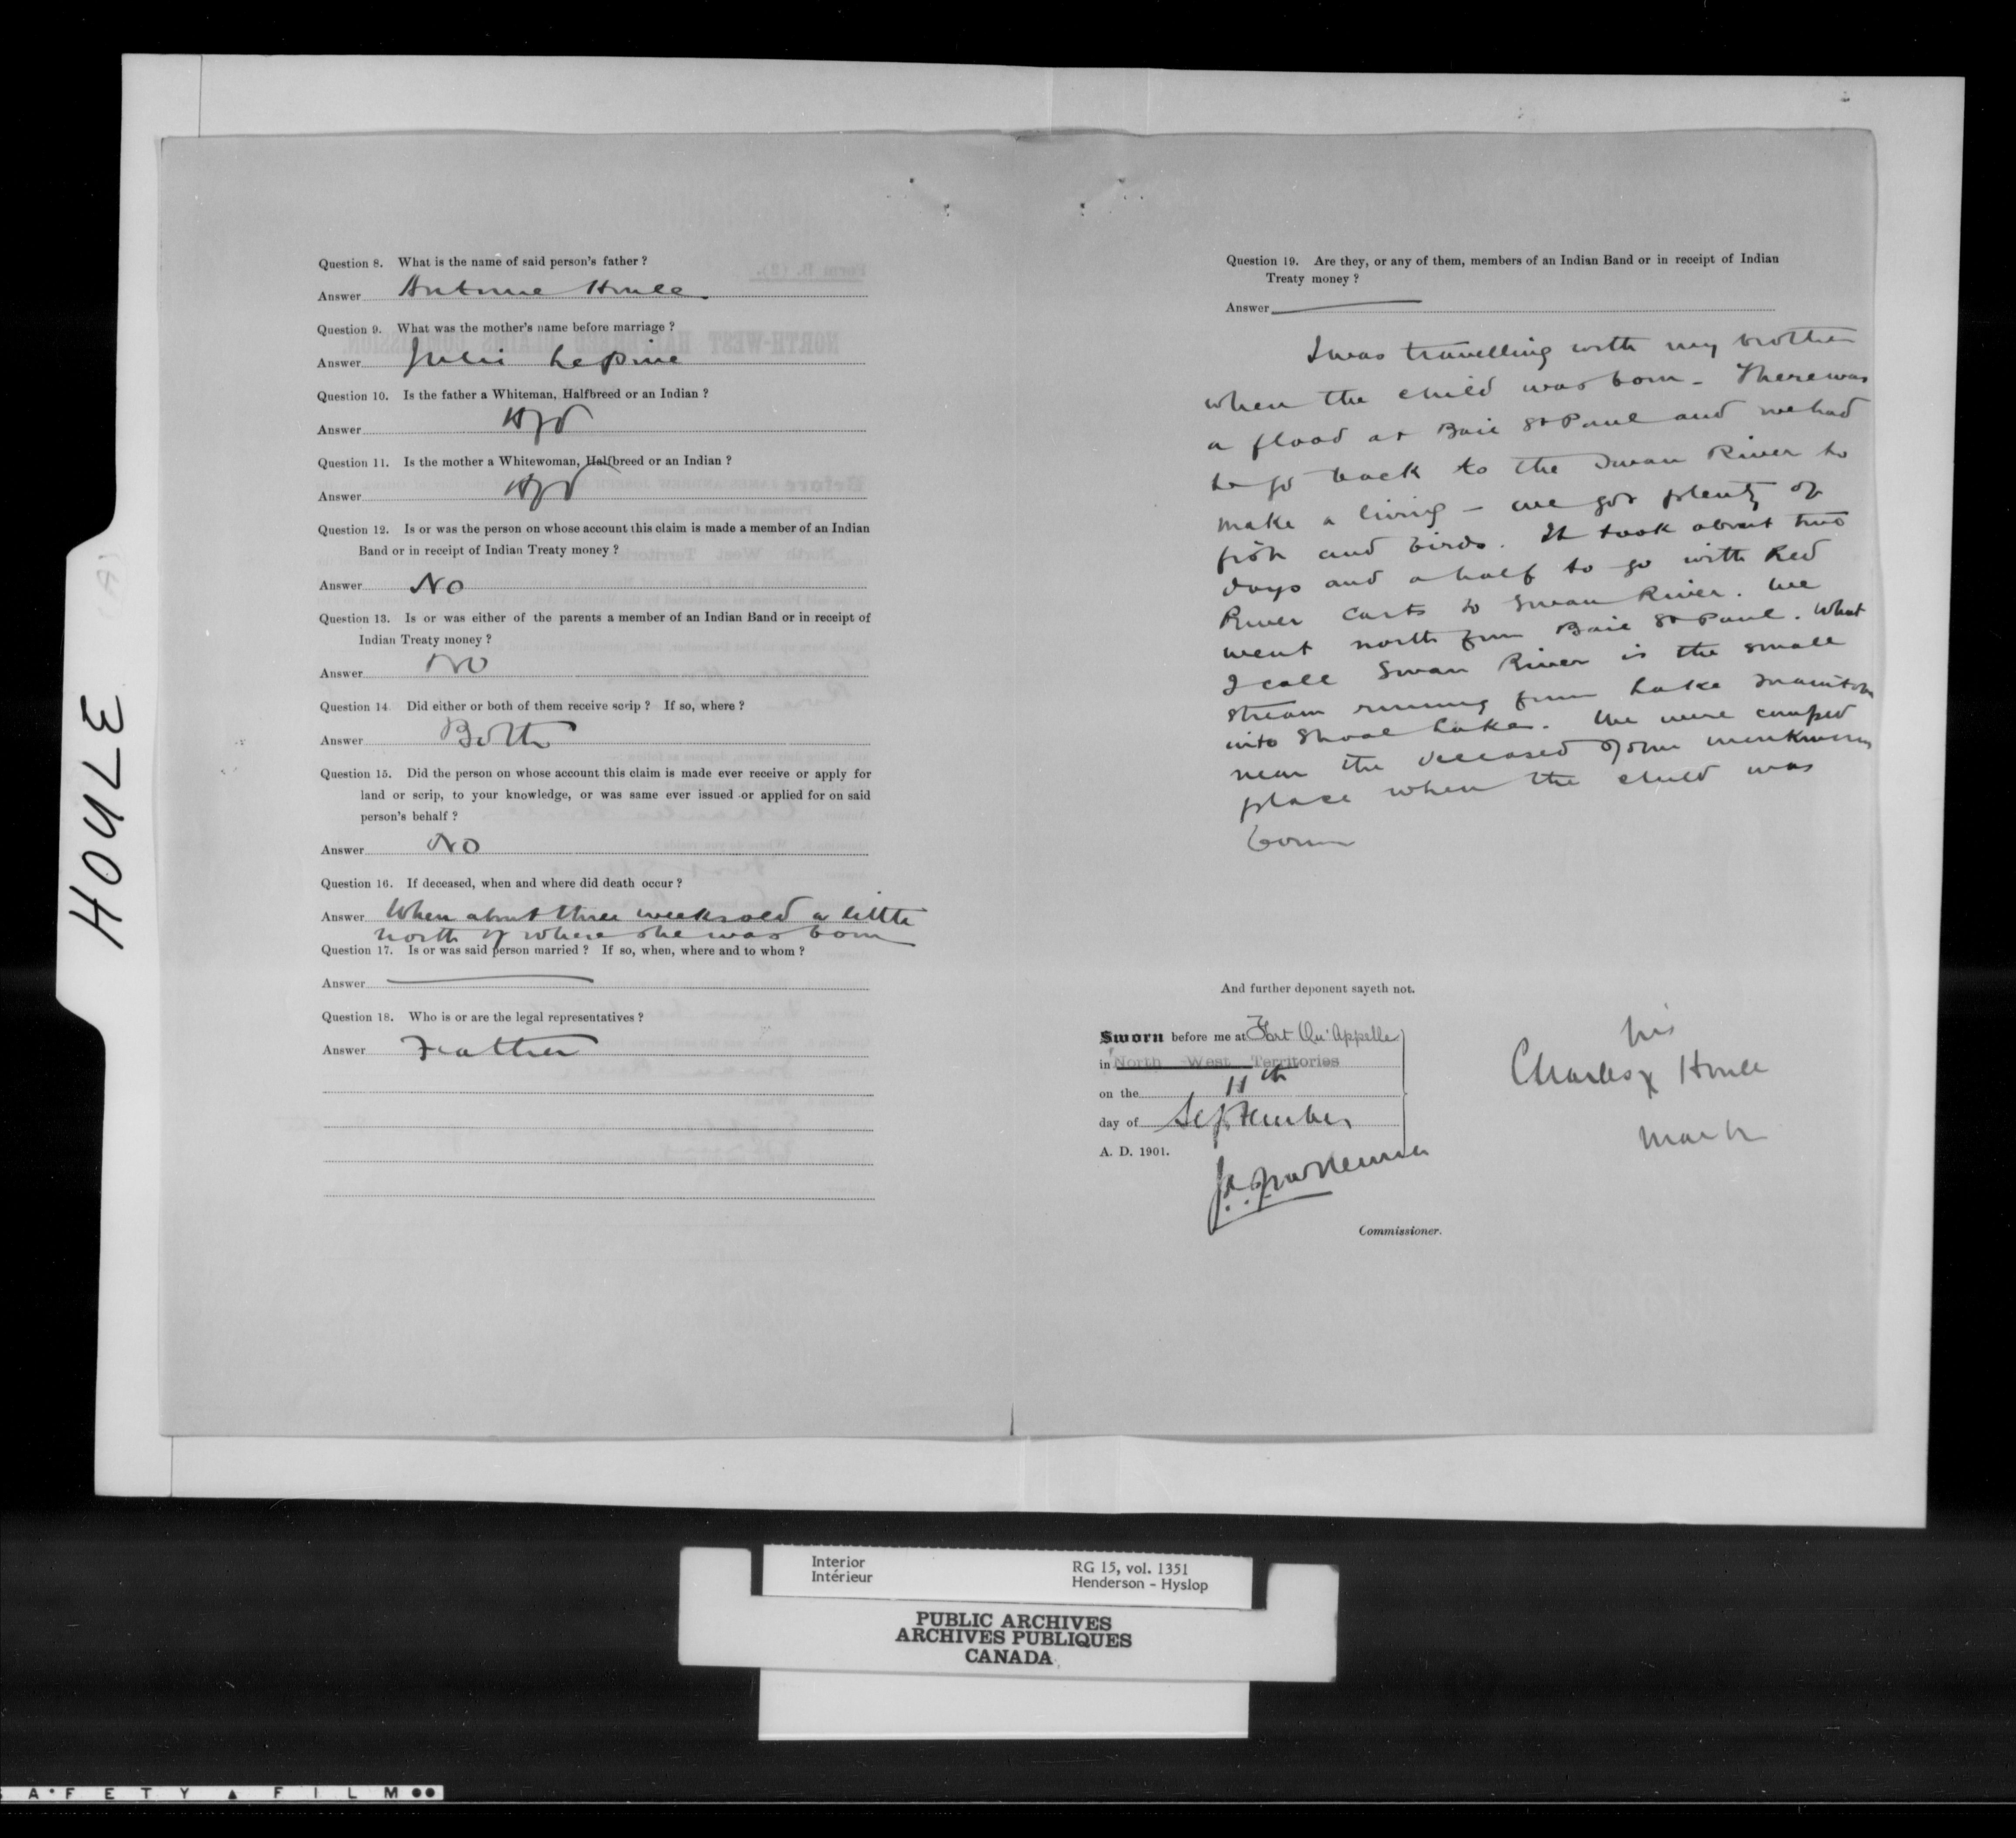 Question 8. What is the name of said person's father ?
Answer Antoine Houle
Question 9. What was the mother's name before marriage ?
Answer Julie Lepine
Question 10. Is the father a Whiteman, Halfbreed or an Indian ?
Answer Hfd
Question 11. Is the mother a Whitewoman, Halfbreed or an Indian ?
Answer Hfd
Question 12. Is or was the person on whose account this claim is made a member of an Indian
Band or in receipt of Indian Treaty money ?
Answer No
Question 13. Is or was either of the parents a member of an Indian Band or in receipt of
Indian Treaty money ?
Answer No
Question 14. Did either or both of them receive scrip ? If so, where ?
Answer Both
Question 15. Did the person on whose account this claim is made ever receive or apply for
land or scrip, to your knowledge, or was same ever issued or applied for on said
person's behalf ?
Answer No
Question 16. If deceased, when and where did death occur ?
Answer When about three weeks old a little
north of where she was born
Question 17. Is or was said person married ? If so, when, where and to whom ?
Answer
Question 18. Who is or are the legal representatives ?
Answer Father
Question 19. Are they, or any of them, members of an Indian Band or in receipt of Indian
Treaty money ?
Answer
I was travelling with my brother
when the child was born - There was
a flood at Baie St Paul and we had
to go back to the Swan River to
make a living - we got plenty of
fish and birds. It took about two
days and a half to go with Red
River Carts to Swan River. We
went north from Baie St Paul. What
I call Swan River is the small
stream running from Lake Manitoba
into Shoal Lake. We were camped
near the deceased
place when the child was
born
And further deponent sayeth not.
Sworn before me at Fort Qu'Appelle
in North West Territories
on the 11th
day of September
A. D. 1901.
Commissioner.
his
Charles x Houle
mark
HOULE
Interior
Intérieur
RG 15, vol. 1351
Henderson - Hyslop
PUBLIC ARCHIVES
ARCHIVES PUBLIQUES
CANADA
SAFETY FILM